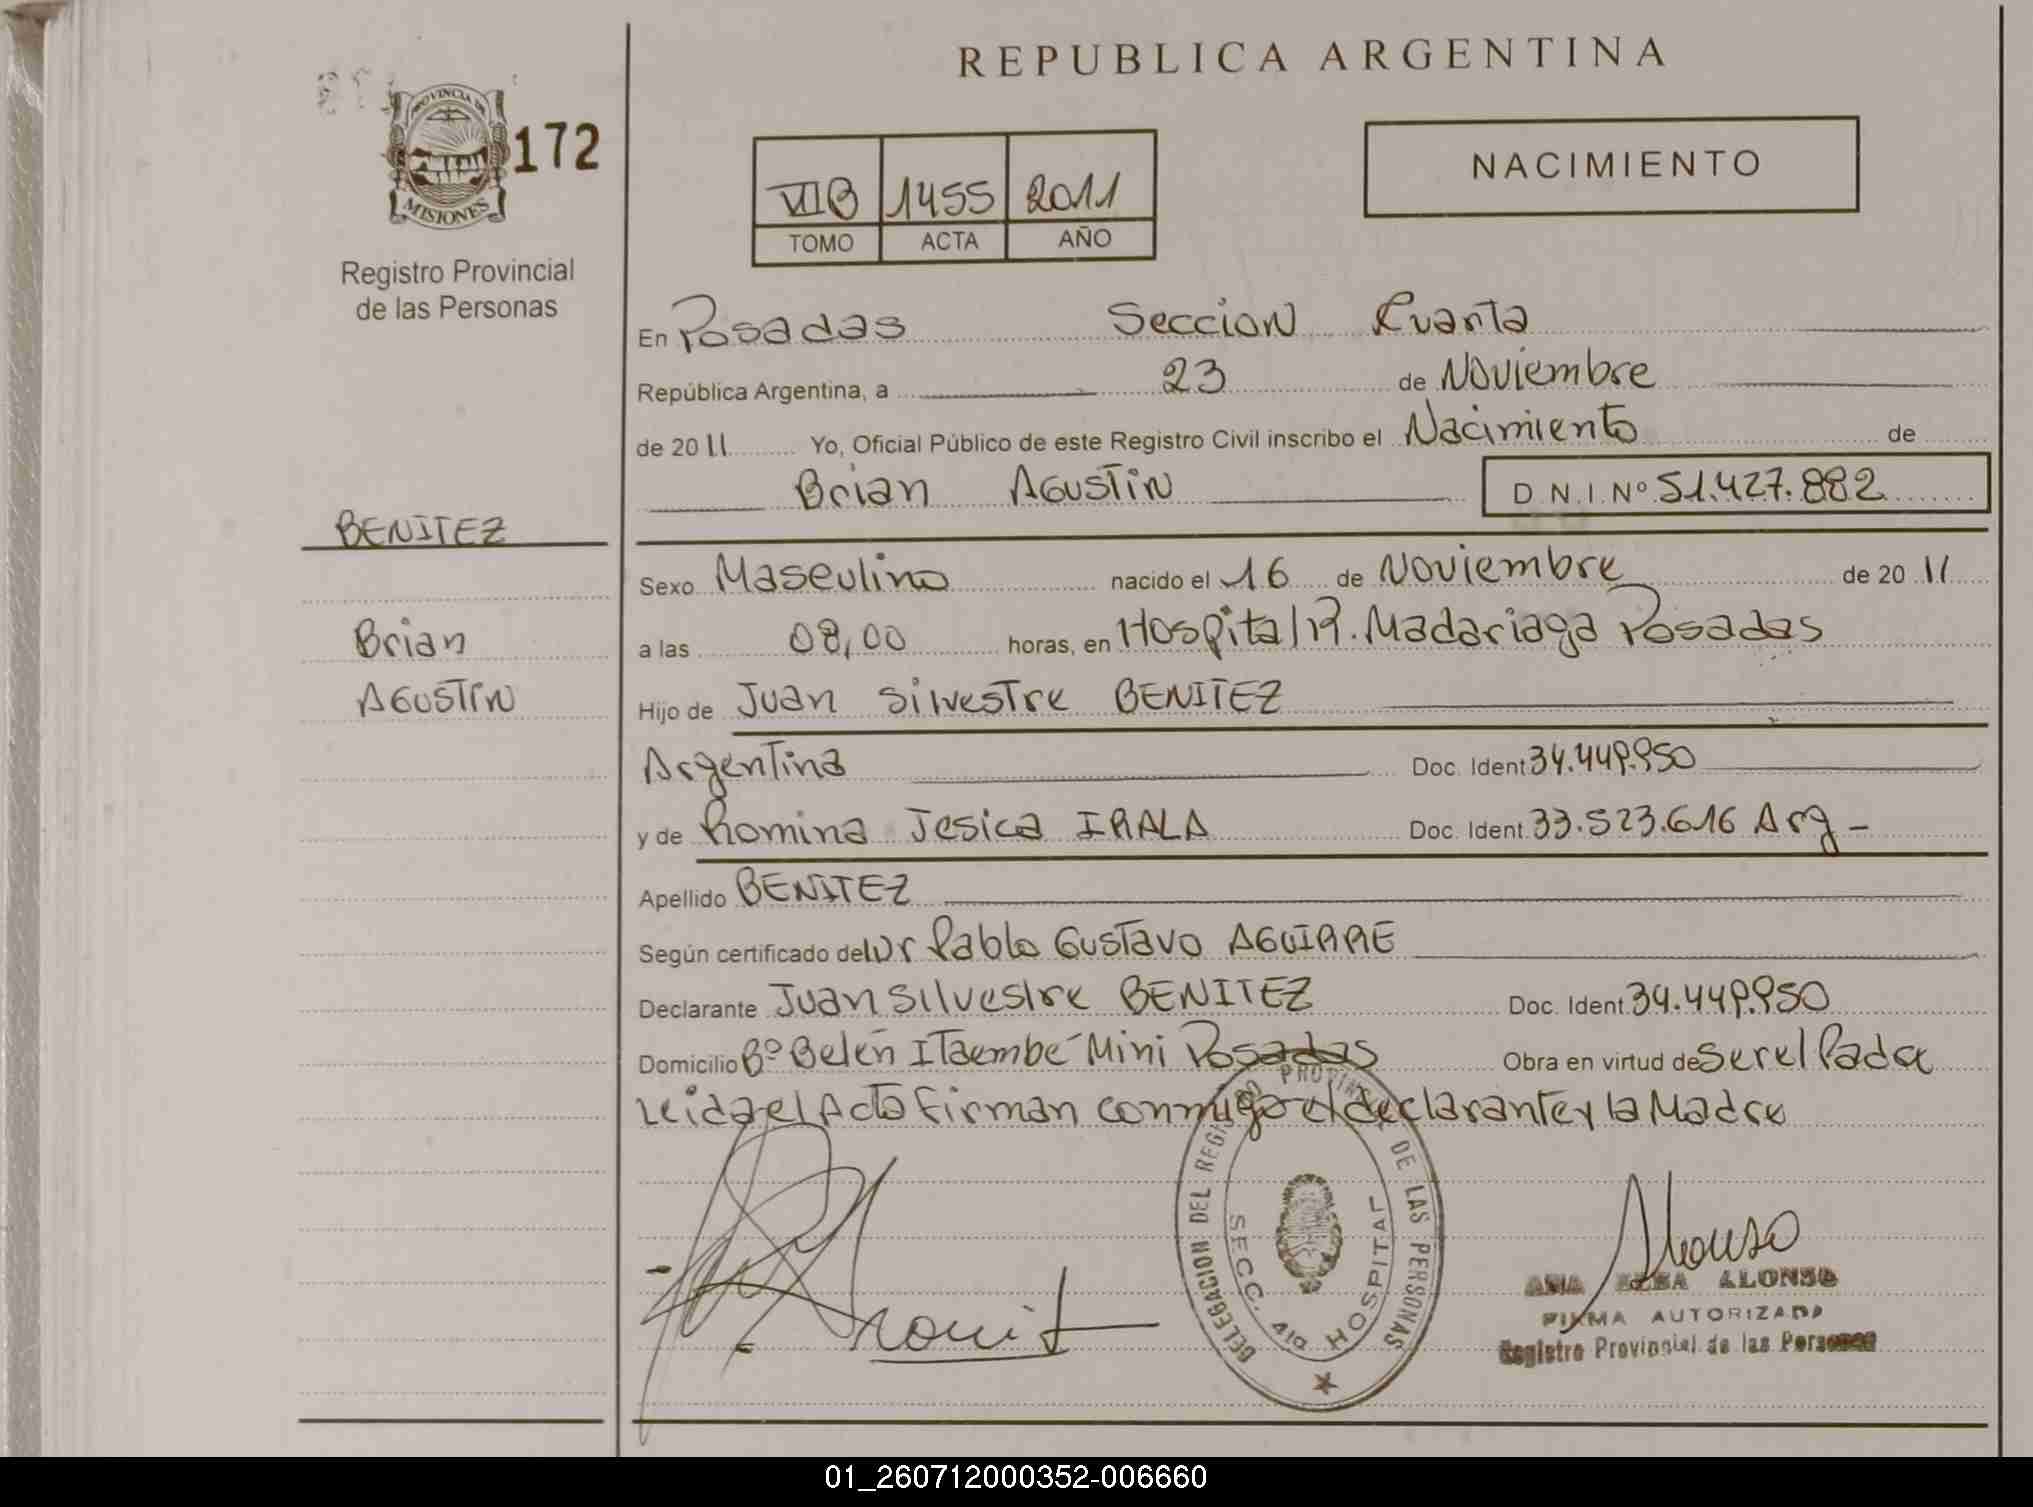 REPUBLICA ARGENTINA
PROVINCIA DE
MISIONES
172
Registro Provincial
de las Personas
NACIMIENTO
VII B 1455 2011
TOMO ACTA AÑO
En Posadas Seccion Cuarta
República Argentina, a 23 de Noviembre
de 2011 Yo, Oficial Público de este Registro Civil inscribo el Nacimiento de
Brian Agustin D.N.I. Nº 51.427.882
BENITEZ
Brian
Agustin
Sexo Masculino nacido el 16 de Noviembre de 2011
a las 08,00 horas, en Hospital R. Madariaga Posadas
Hijo de Juan Silvestre BENITEZ
Argentina Doc. Ident 34.449.950
y de Romina Jesica IRALA Doc. Ident. 33.523.616 Arg -
Apellido BENITEZ
Según certificado del Dr Pablo Gustavo AGUIRRE
Declarante Juan Silvestre BENITEZ Doc. Ident. 34.449.950
Domicilio Bº Belén Itaembé Mini Posadas Obra en virtud de Ser el Padre
Leida el Acta Firman conmigo el declarante y la Madre
DELEGACION DEL REGISTRO PROVINCIAL DE LAS PERSONAS
SECC. 4ta HOSPITAL
Alonso
ANA ALONSO
FIRMA AUTORIZADA
Registro Provincial de las Personas
01_260712000352-006660